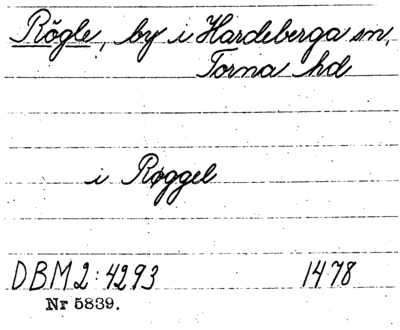 Rögle, by i Hardeberga sn,
Torna hd
i Røggel
DBM 2:4293 1478
Nr 5839.